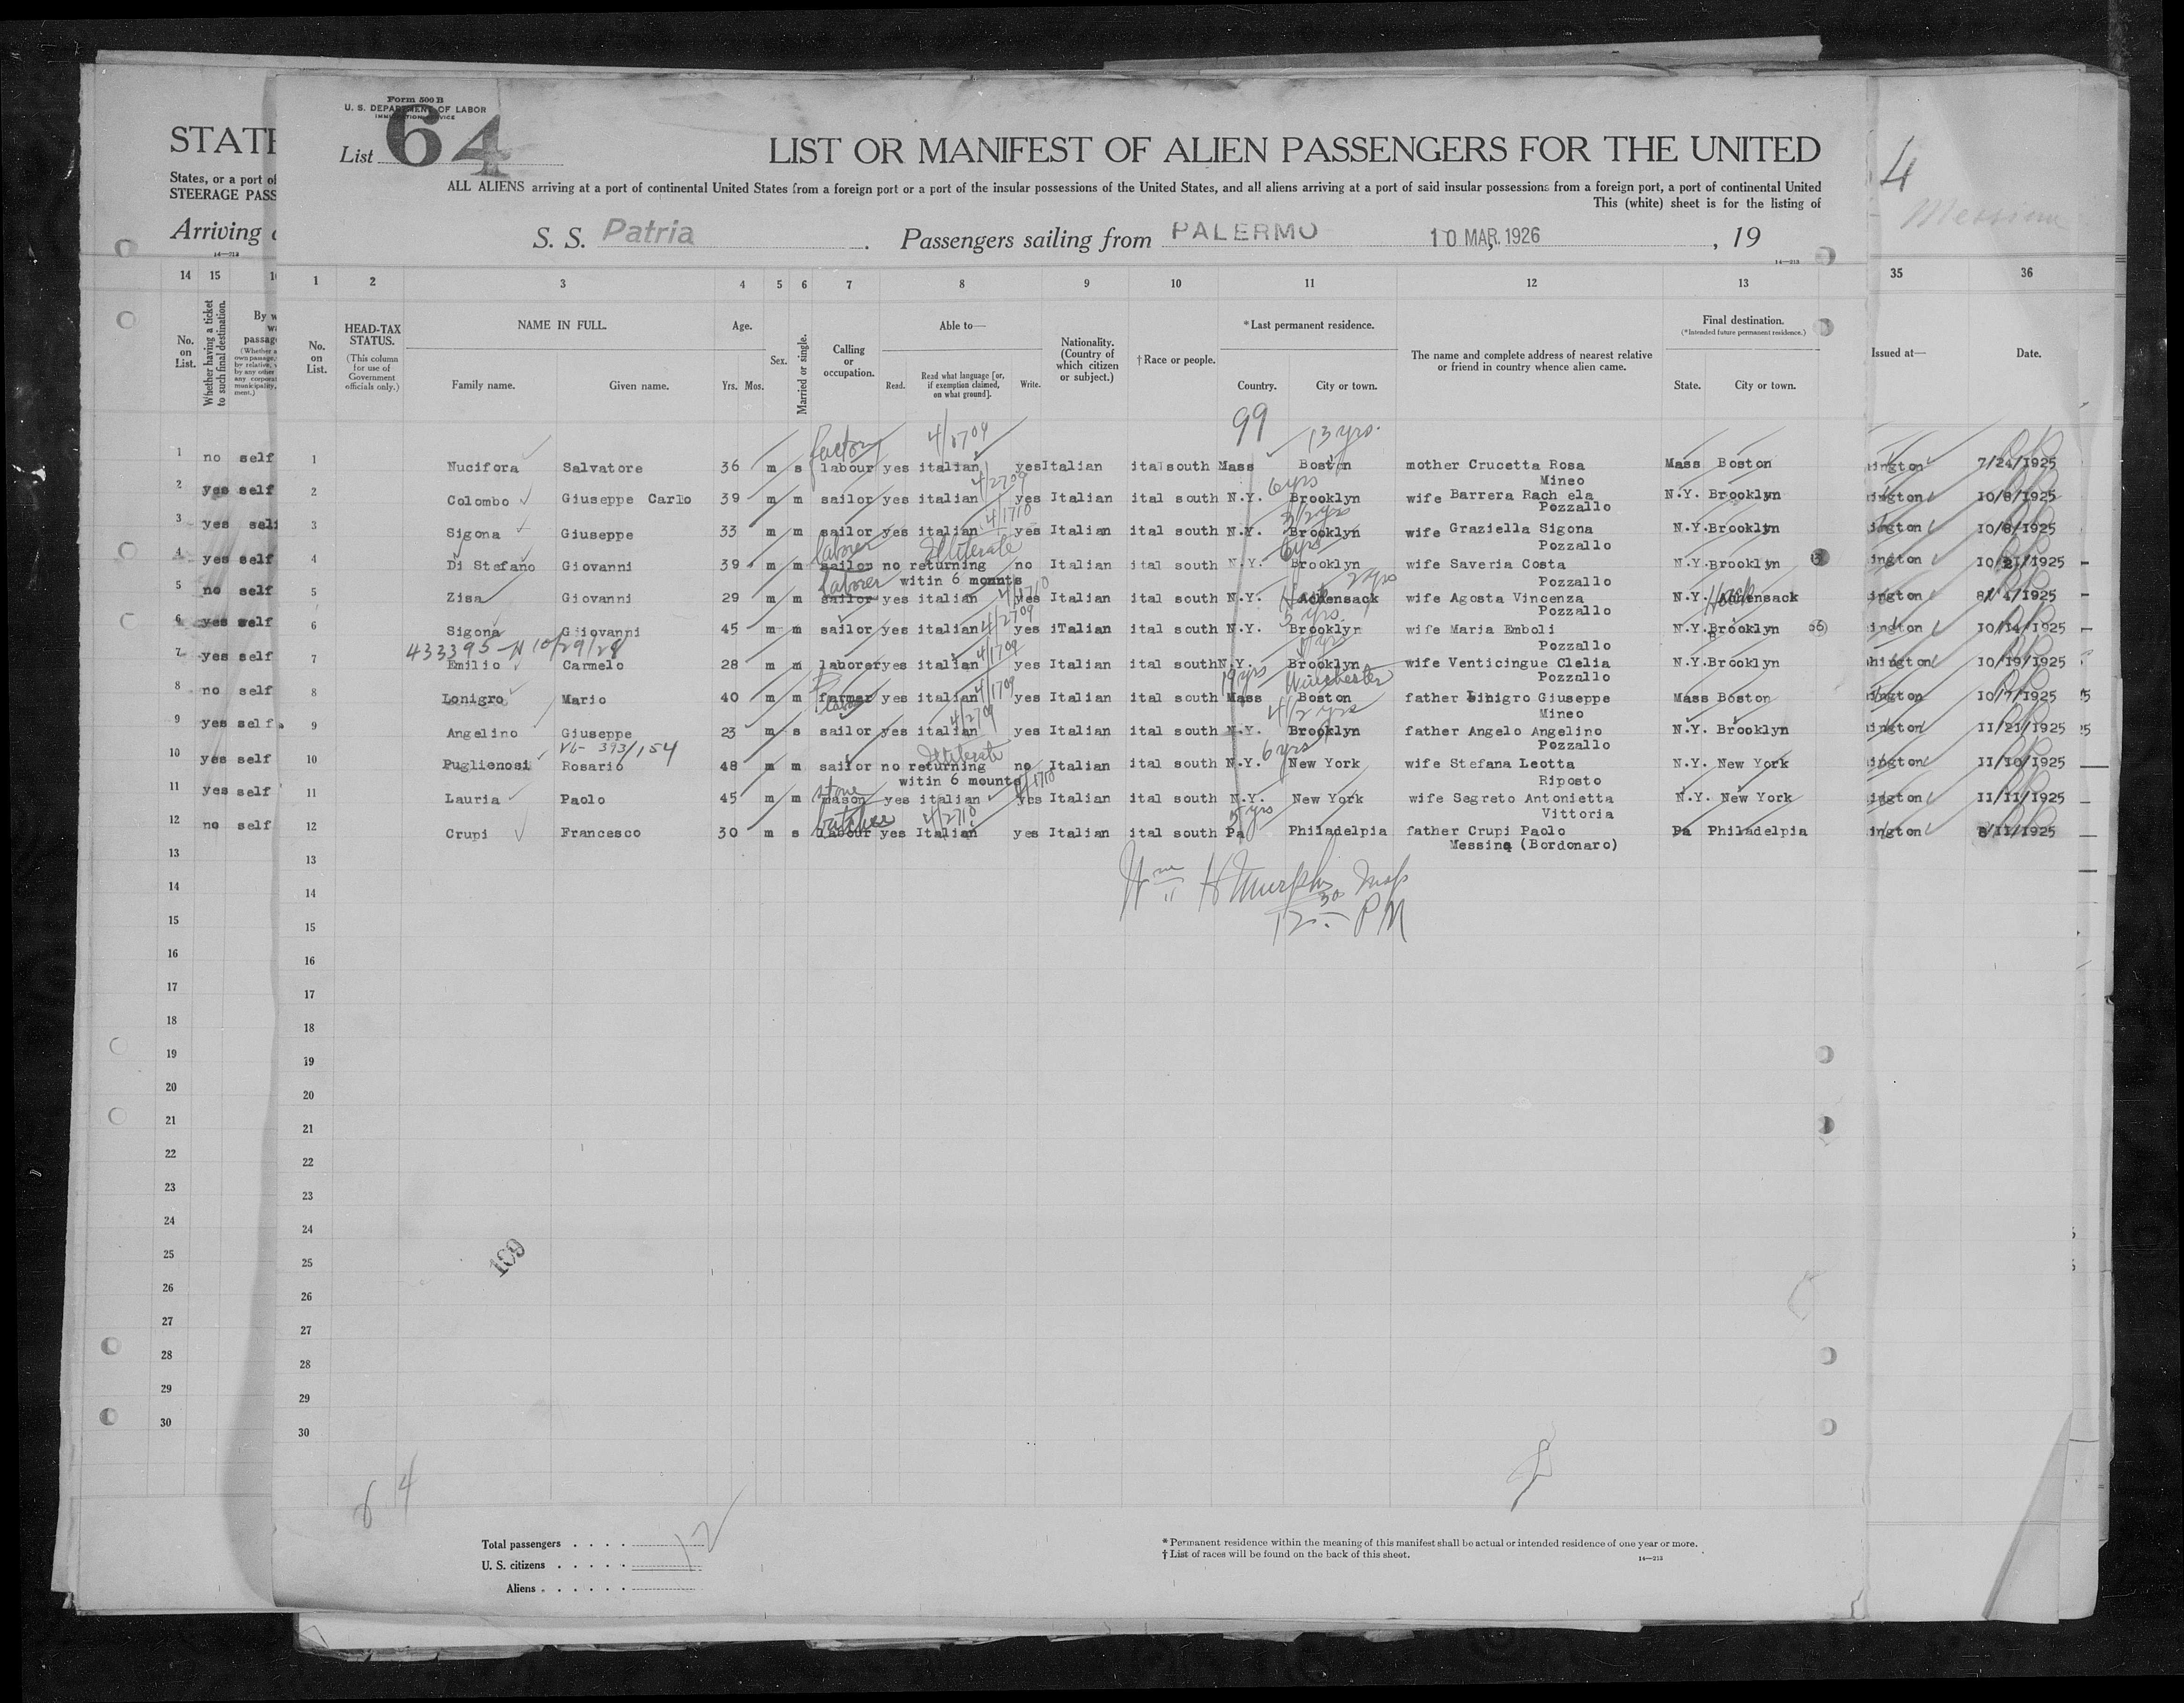 Form 500 B
U. S. DEPARTMENT OF LABOR
IMMIGRATION SERVICE
List 64
LIST OR MANIFEST OF ALIEN PASSENGERS FOR THE UNITED
ALL ALIENS arriving at a port of continental United States from a foreign port or a port of the insular possessions of the United States, and all aliens arriving at a port of said insular possessions from a foreign port, a port of continental United
This (white) sheet is for the listing of
S. S. Patria . Passengers sailing from PALERMO 10 MAR. 1926 , 19
14—213
STATE
States, or a port of
STEERAGE PASS
Arriving
14—213
4
Messina
14 15
1 2 3 4 5 6 7 8 9 10 11 12 13
35 36
No. on List.
Whether having a ticket to such final destination.
No. on List.
HEAD-TAX STATUS.
(This column for use of Government officials only.)
NAME IN FULL.
Family name. Given name.
Age.
Yrs. Mos.
Sex.
Married or single.
Calling or occupation.
Able to—
Read. Read what language [or, if exemption claimed, on what ground]. Write.
Nationality. (Country of which citizen or subject.)
†Race or people.
*Last permanent residence.
Country. City or town.
The name and complete address of nearest relative or friend in country whence alien came.
Final destination.
(*Intended future permanent residence.)
State. City or town.
Issued at— Date.
99 13 yrs.
factory
1 no self 1 Nucifora Salvatore 36 m s labour yes italian yes Italian ital south Mass Boston mother Crucetta Rosa Mass Boston ington 7/24/1925
Mineo
4/2709 6 yrs
2 yes self 2 Colombo Giuseppe Carlo 39 m m sailor yes italian yes Italian ital south N.Y. Brooklyn wife Barrera Rach ela N.Y. Brooklyn ington 10/8/1925
Pozzallo
4/1710 3/2 yrs
3 yes self 3 Sigona Giuseppe 33 m m sailor yes italian yes Italian ital south N.Y. Brooklyn wife Graziella Sigona N.Y. Brooklyn ington 10/8/1925
Pozzallo
laborer Illiterate 6 yrs
4 yes self 4 Di Stefano Giovanni 39 m m sailor no returning no Italian ital south N.Y. Brooklyn wife Saveria Costa N.Y. Brooklyn ington 10/21/1925
witin 6 mounts Pozzallo
laborer 2 yrs
5 no self 5 Zisa Giovanni 29 m m sailor yes italian yes Italian ital south N.Y. Hackensack wife Agosta Vincenza N.Y. Hackensack ington
Pozzallo
4/2709
6 yes self 6 Sigona Giiovanni 45 m m sailor yes italian yes iTalian ital south N.Y. Brooklyn wife Maria Emboli N.Y. Brooklyn ington 10/14/1925
433395-N 10/29/28 4/1709 Pozzallo
7 yes self 7 Emilio Carmelo 28 m m laborer yes italian yes Italian ital south N.Y. Brooklyn wife Venticingue Clelia N.Y. Brooklyn hington 10/19/1925
Pozzallo
4/1709 19 yrs Winchester
8 no self 8 Lonigro Mario 40 m m farmer yes italian yes Italian ital south Mass Boston father Linigro Giuseppe Mass Boston ington 10/7/1925
Mineo
labor 4/2709 4/2 yrs
9 yes self 9 Angelino Giuseppe 23 m s sailor yes italian yes Italian ital south N.Y. Brooklyn father Angelo Angelino N.Y. Brooklyn ington 11/21/1925
Pozzallo
V6- 393/154 Illiterate 6 yrs
10 yes self 10 Puglienosi Rosario 48 m m sailor no returning no Italian ital south N.Y. New York wife Stefana Leotta N.Y. New York ington 11/10/1925
witin 6 mounts Riposto
stone
11 yes self 11 Lauria Paolo 45 m m mason yes italian yes Italian ital south N.Y. New York wife Segreto Antonietta N.Y. New York ington 11/11/1925
Vittoria
butcher 4/2710 5 yrs
12 no self 12 Crupi Francesco 30 m s labour yes Italian yes Italian ital south Pa Philadelpia father Crupi Paolo Pa Philadelpia ington 8/11/1925
Messina (Bordonaro)
Wm H Murphy Insp
12 30 PM
13 13
14 14
15 15
16 16
17 17
18 18
19 19
20 20
21 21
22 22
23 23
24 24
25 25
26 26
27 27
28 28
29 29
30 30
109
64
Total passengers . . . . 12
U. S. citizens . . . . .
Aliens . . . . . .
*Permanent residence within the meaning of this manifest shall be actual or intended residence of one year or more.
†List of races will be found on the back of this sheet.
14—213